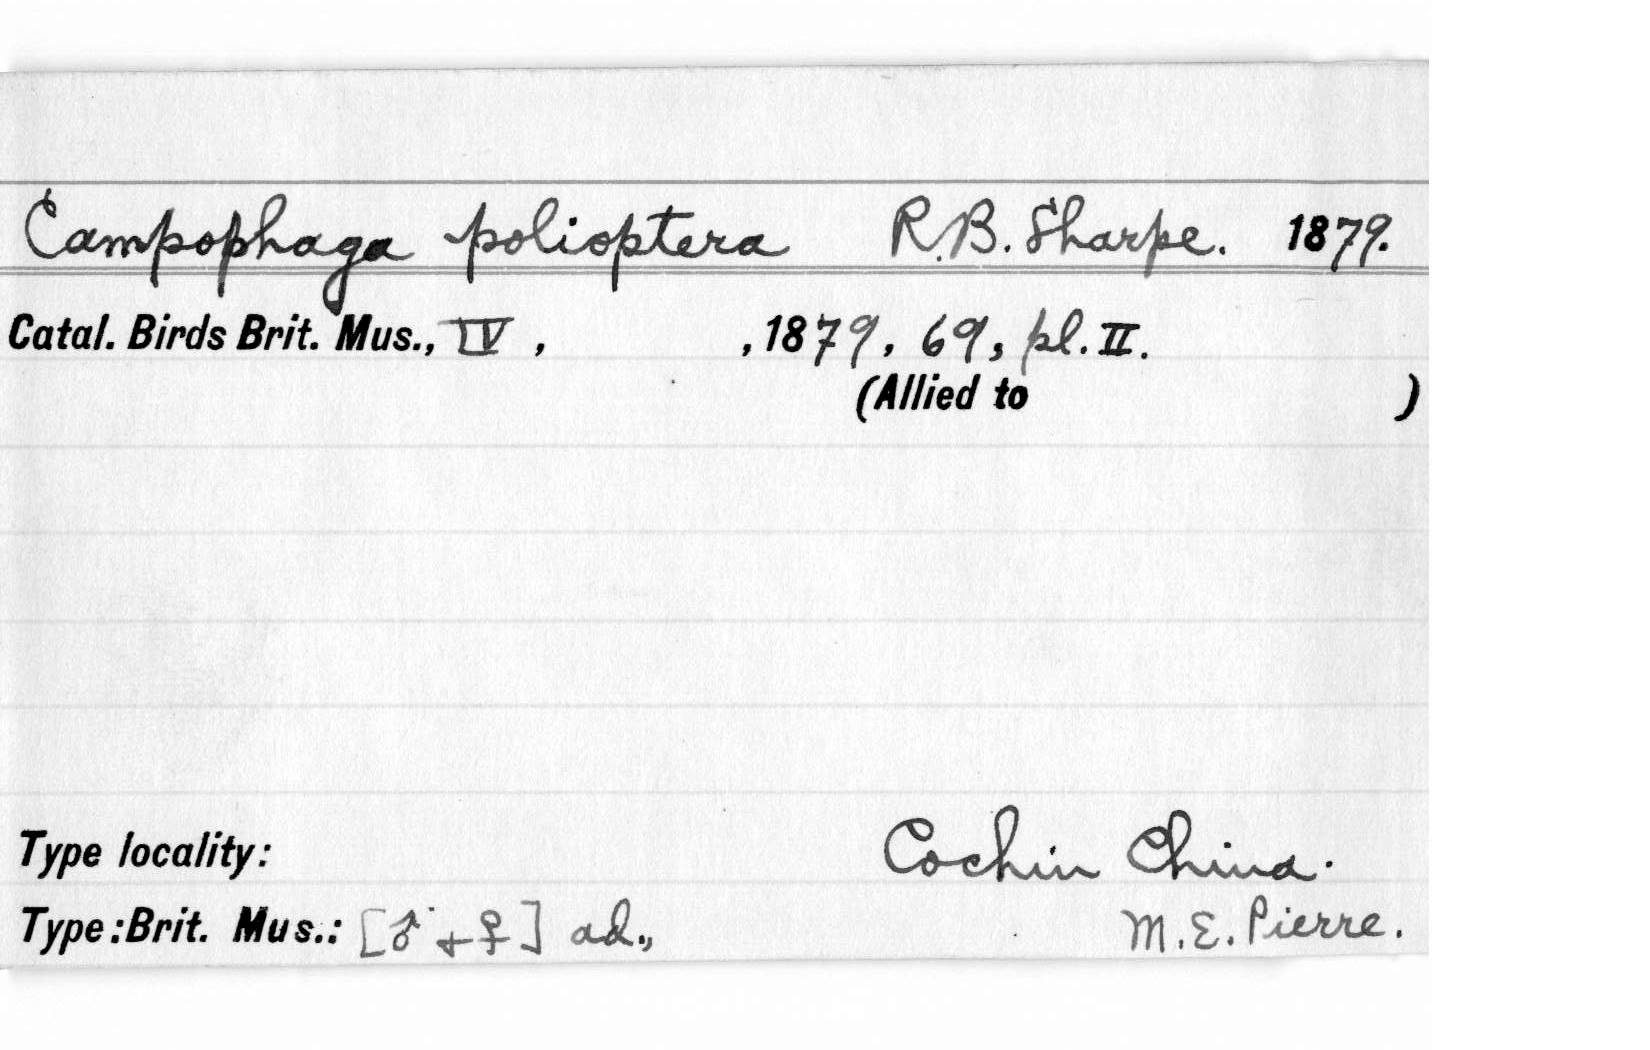 Campophaga polioptera R.B. Sharpe. 1879.
Catal. Birds Brit. Mus., IV , , 1879, 69, pl. II.
(Allied to )
Type locality: Cochin China.
Type: Brit. Mus.: [♂ + ♀] ad., M.E. Pierre.